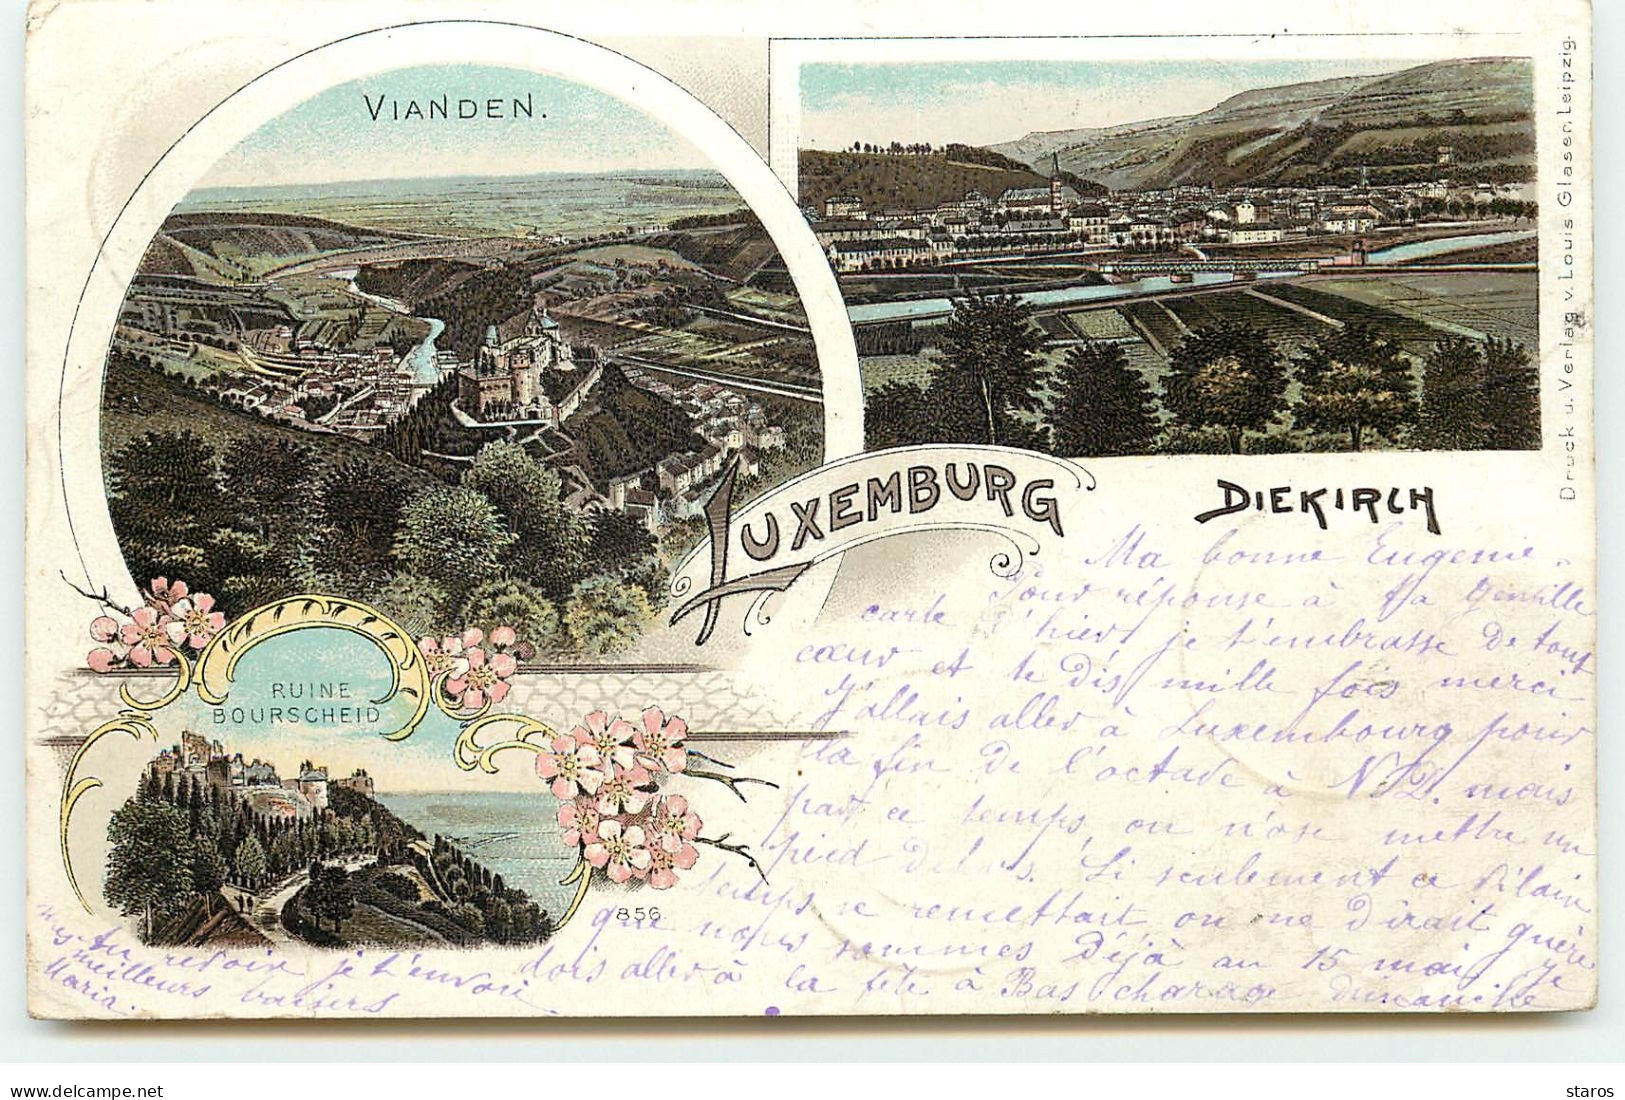 VIANDEN.
LUXEMBURG
DIEKIRCH
RUINE
BOURSCHEID
856
Druck u. Verlag v. Louis Glaser, Leipzig.
Ma bonne Eugenie -
Pour réponse à ta gentille
carte d'hier je t'embrasse de tout
cœur et te dis mille fois merci
J'allais aller à Luxembourg pour
la fin de l'octave à N.D. mais
par ce temps, on n'ose mettre un
pied dehors. Si seulement ce vilain
temps se remettait, on ne dirait guère
que nous sommes déjà au 15 mai, je
dois aller à la fête à Bascharage dimanche
Au revoir je t'envoie
meilleurs baisers
Maria.
staros
delcampe.net